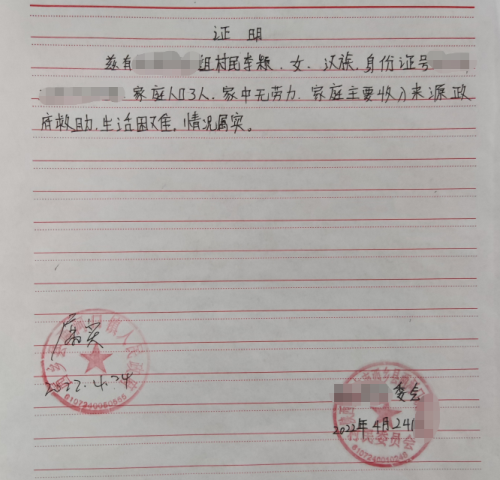 证明
兹有 组村民李颖，女，汉族，身份证号
家庭人口3人，家中无劳力，家庭主要收入来源政
府救助，生活困难，情况属实。
属实
2022.4.24
委会
2022年4月24日
村民委员会